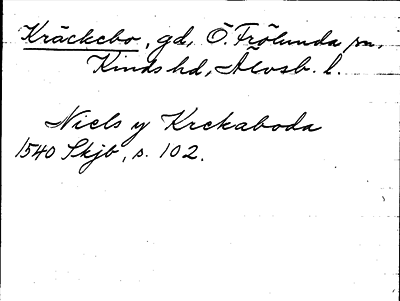 Kräckebo, gd, Ö. Frölunda sn,
Kinds hd, Älvsb. l.
Niels y Krekaboda
1540 Skjb, s. 102.